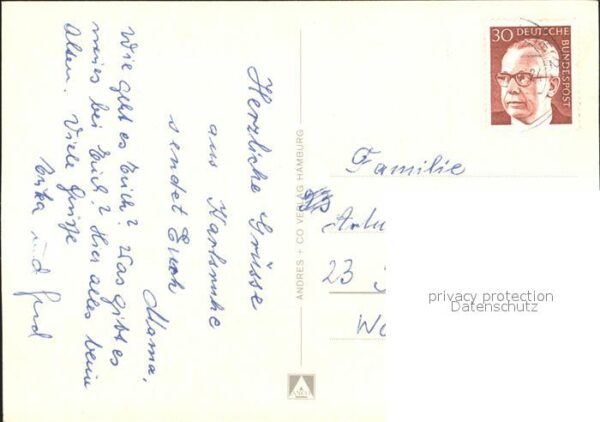 Herzliche Grüsse
aus Karlsruhe
sendet Euch
Mama.
Wie geht es Euch? Was gibt es
neues bei Euch? Hier alles beim
Alten. Viele Grüße
Erika und Gerd
ANDRES + CO VERLAG HAMBURG
30 DEUTSCHE
BUNDESPOST
Familie
23
privacy protection
Datenschutz